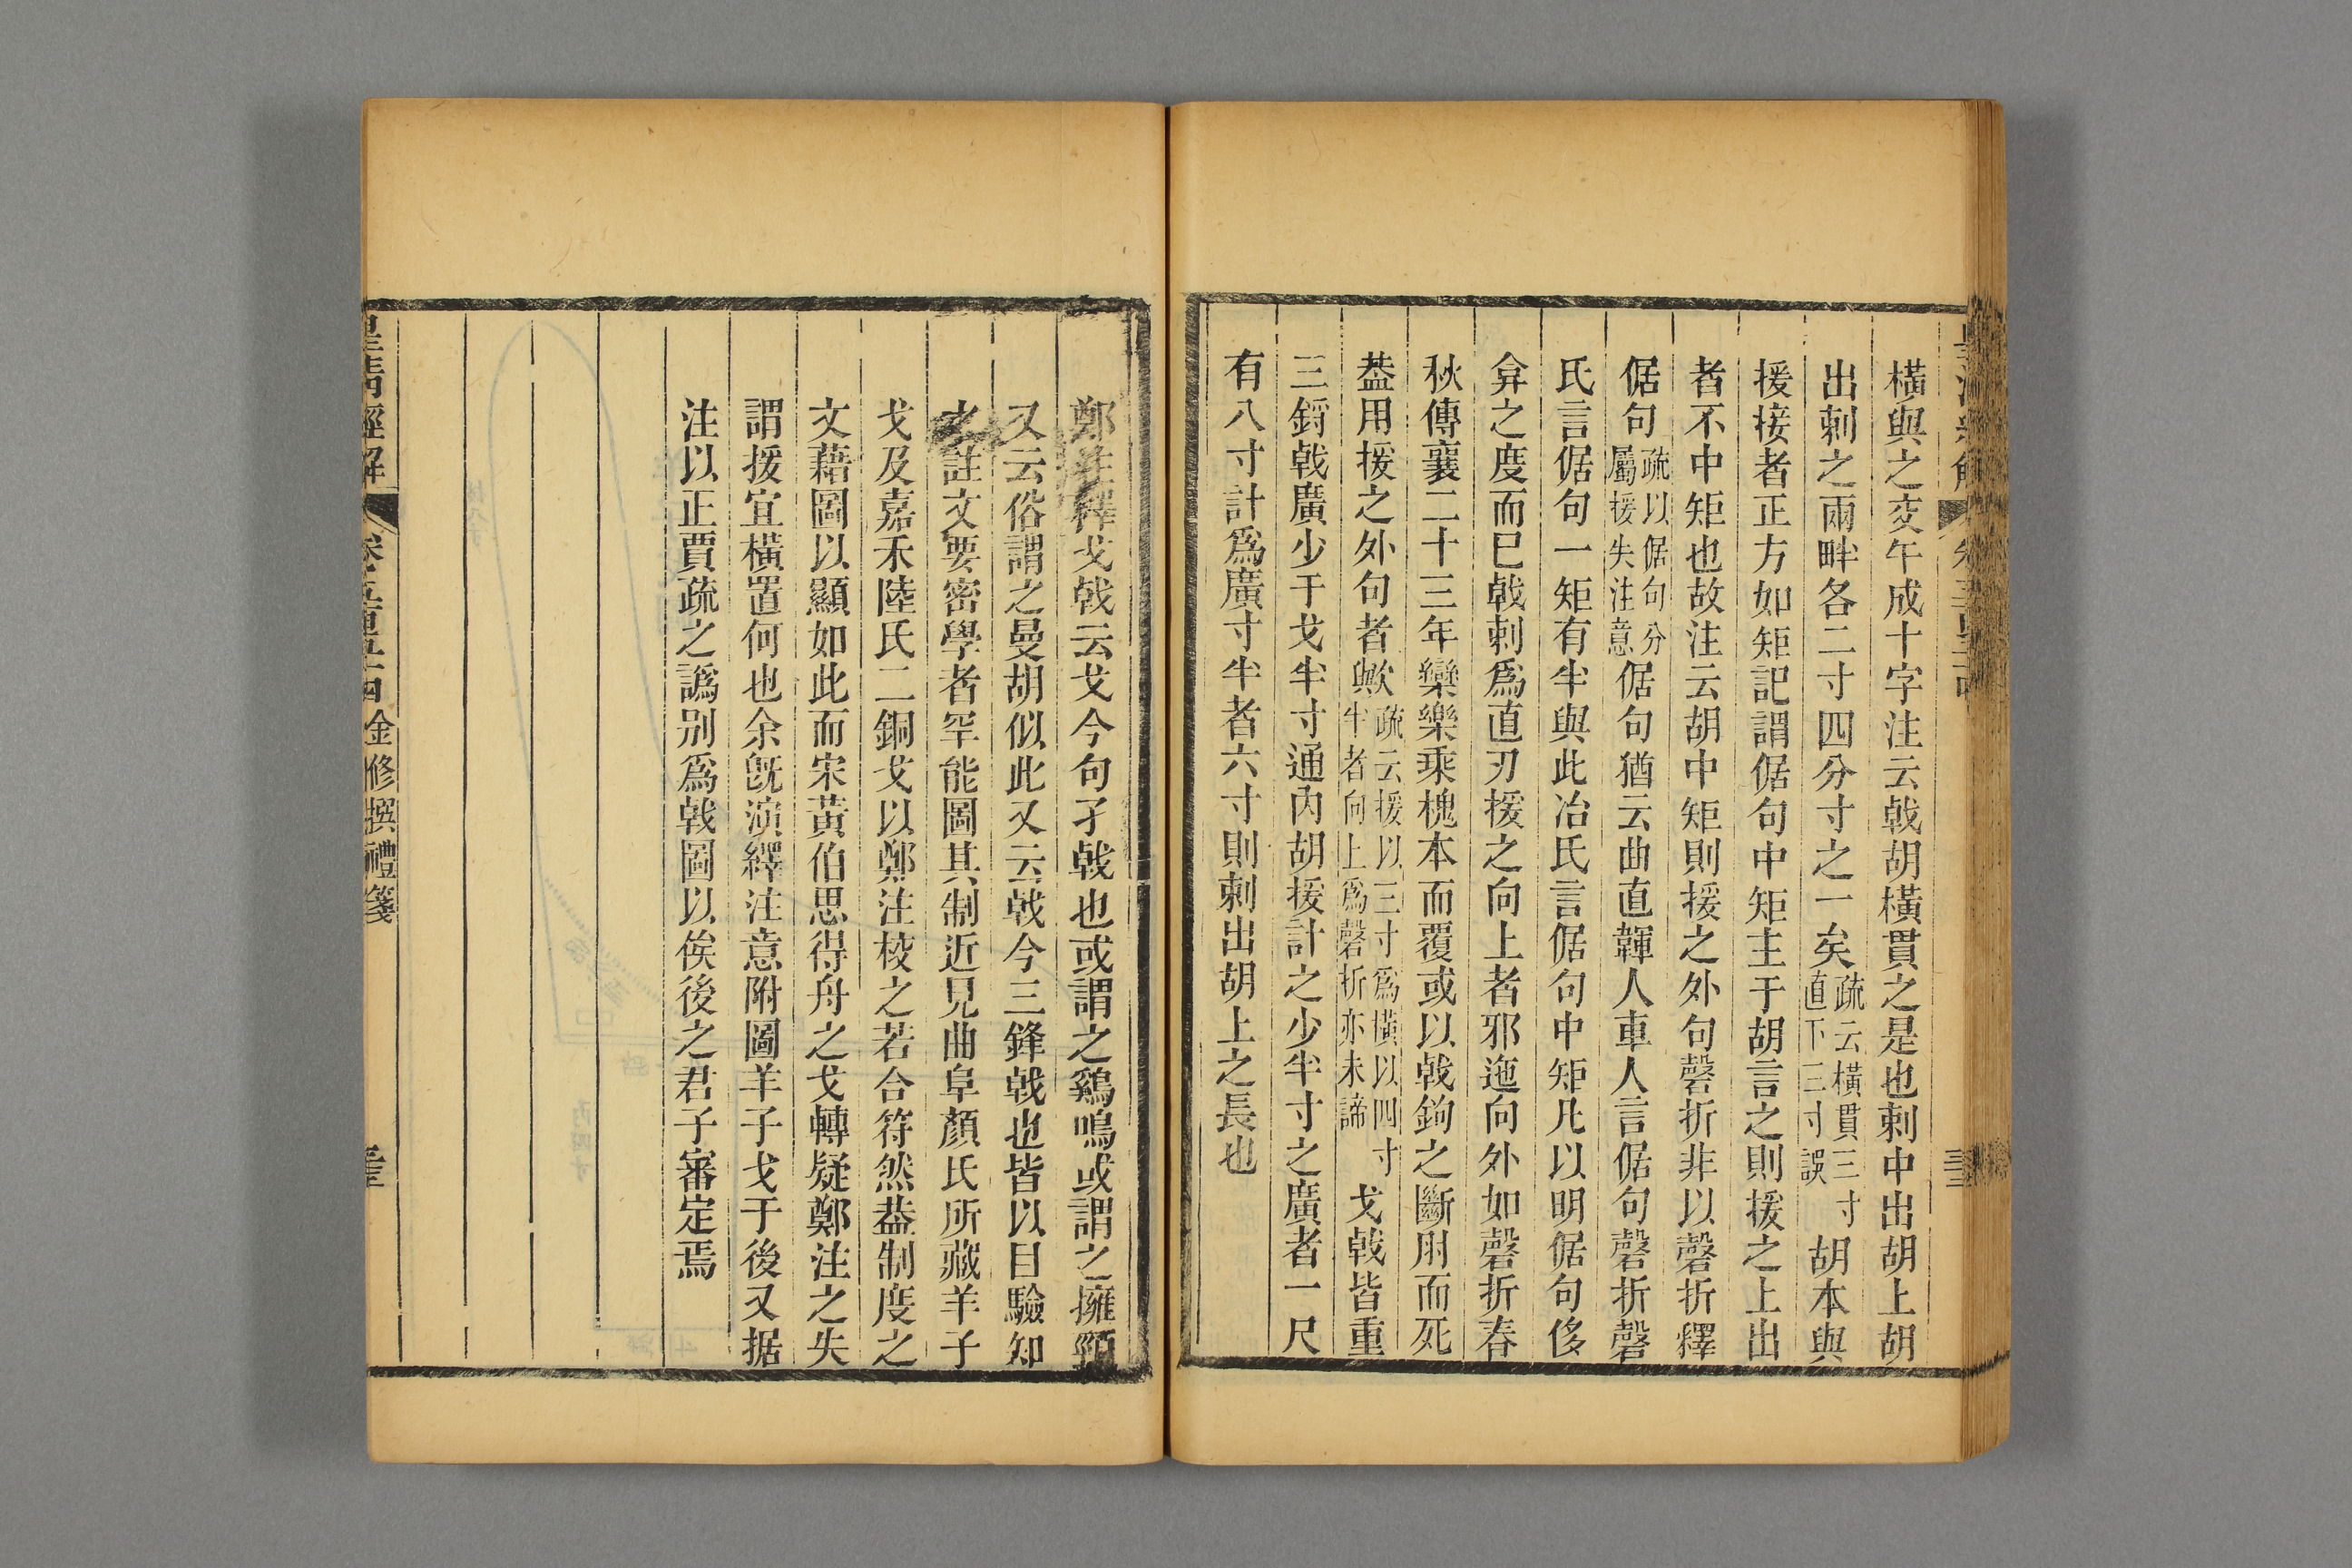 橫與之交午成十字注云戟胡橫貫之是也刺中出胡上胡
出刺之兩畔各二寸四分寸之一矣疏云橫貫三寸直下三寸誤胡本與
援接者正方如矩記謂倨句中矩主于胡言之則援之上出
者不中矩也故注云胡中矩則援之外句磬折非以磬折釋
倨句疏以倨句分屬援失注意倨句猶云曲直韗人車人言倨句磬折磬
氏言倨句一矩有半與此冶氏言倨句中矩凡以明倨句侈
弇之度而已戟刺爲直刃援之向上者邪迤向外如磬折春
秋傳襄二十三年欒樂乘槐本而覆或以戟鉤之斷肘而死
葢用援之外句者歟疏云援以三寸爲橫以四寸半者向上爲磬折亦未諦戈戟皆重
三鋝戟廣少于戈半寸通內胡援計之少半寸之廣者一尺
有八寸計爲廣寸半者六寸則刺出胡上之長也
鄭注釋戈戟云戈今句孑戟也或謂之鷄鳴或謂之擁頸
又云俗謂之曼胡似此又云戟今三鋒戟也皆以目驗知
之註文要密學者罕能圖其制近見曲阜顏氏所藏羊子
戈及嘉禾陸氏二銅戈以鄭注校之若合符然葢制度之
文藉圖以顯如此而宋黃伯思得舟之戈轉疑鄭注之失
謂援宜橫置何也余旣演繹注意附圖羊子戈于後又据
注以正賈疏之譌别爲戟圖以俟後之君子審定焉
皇清經解 卷五百五十四 金修撰禮箋